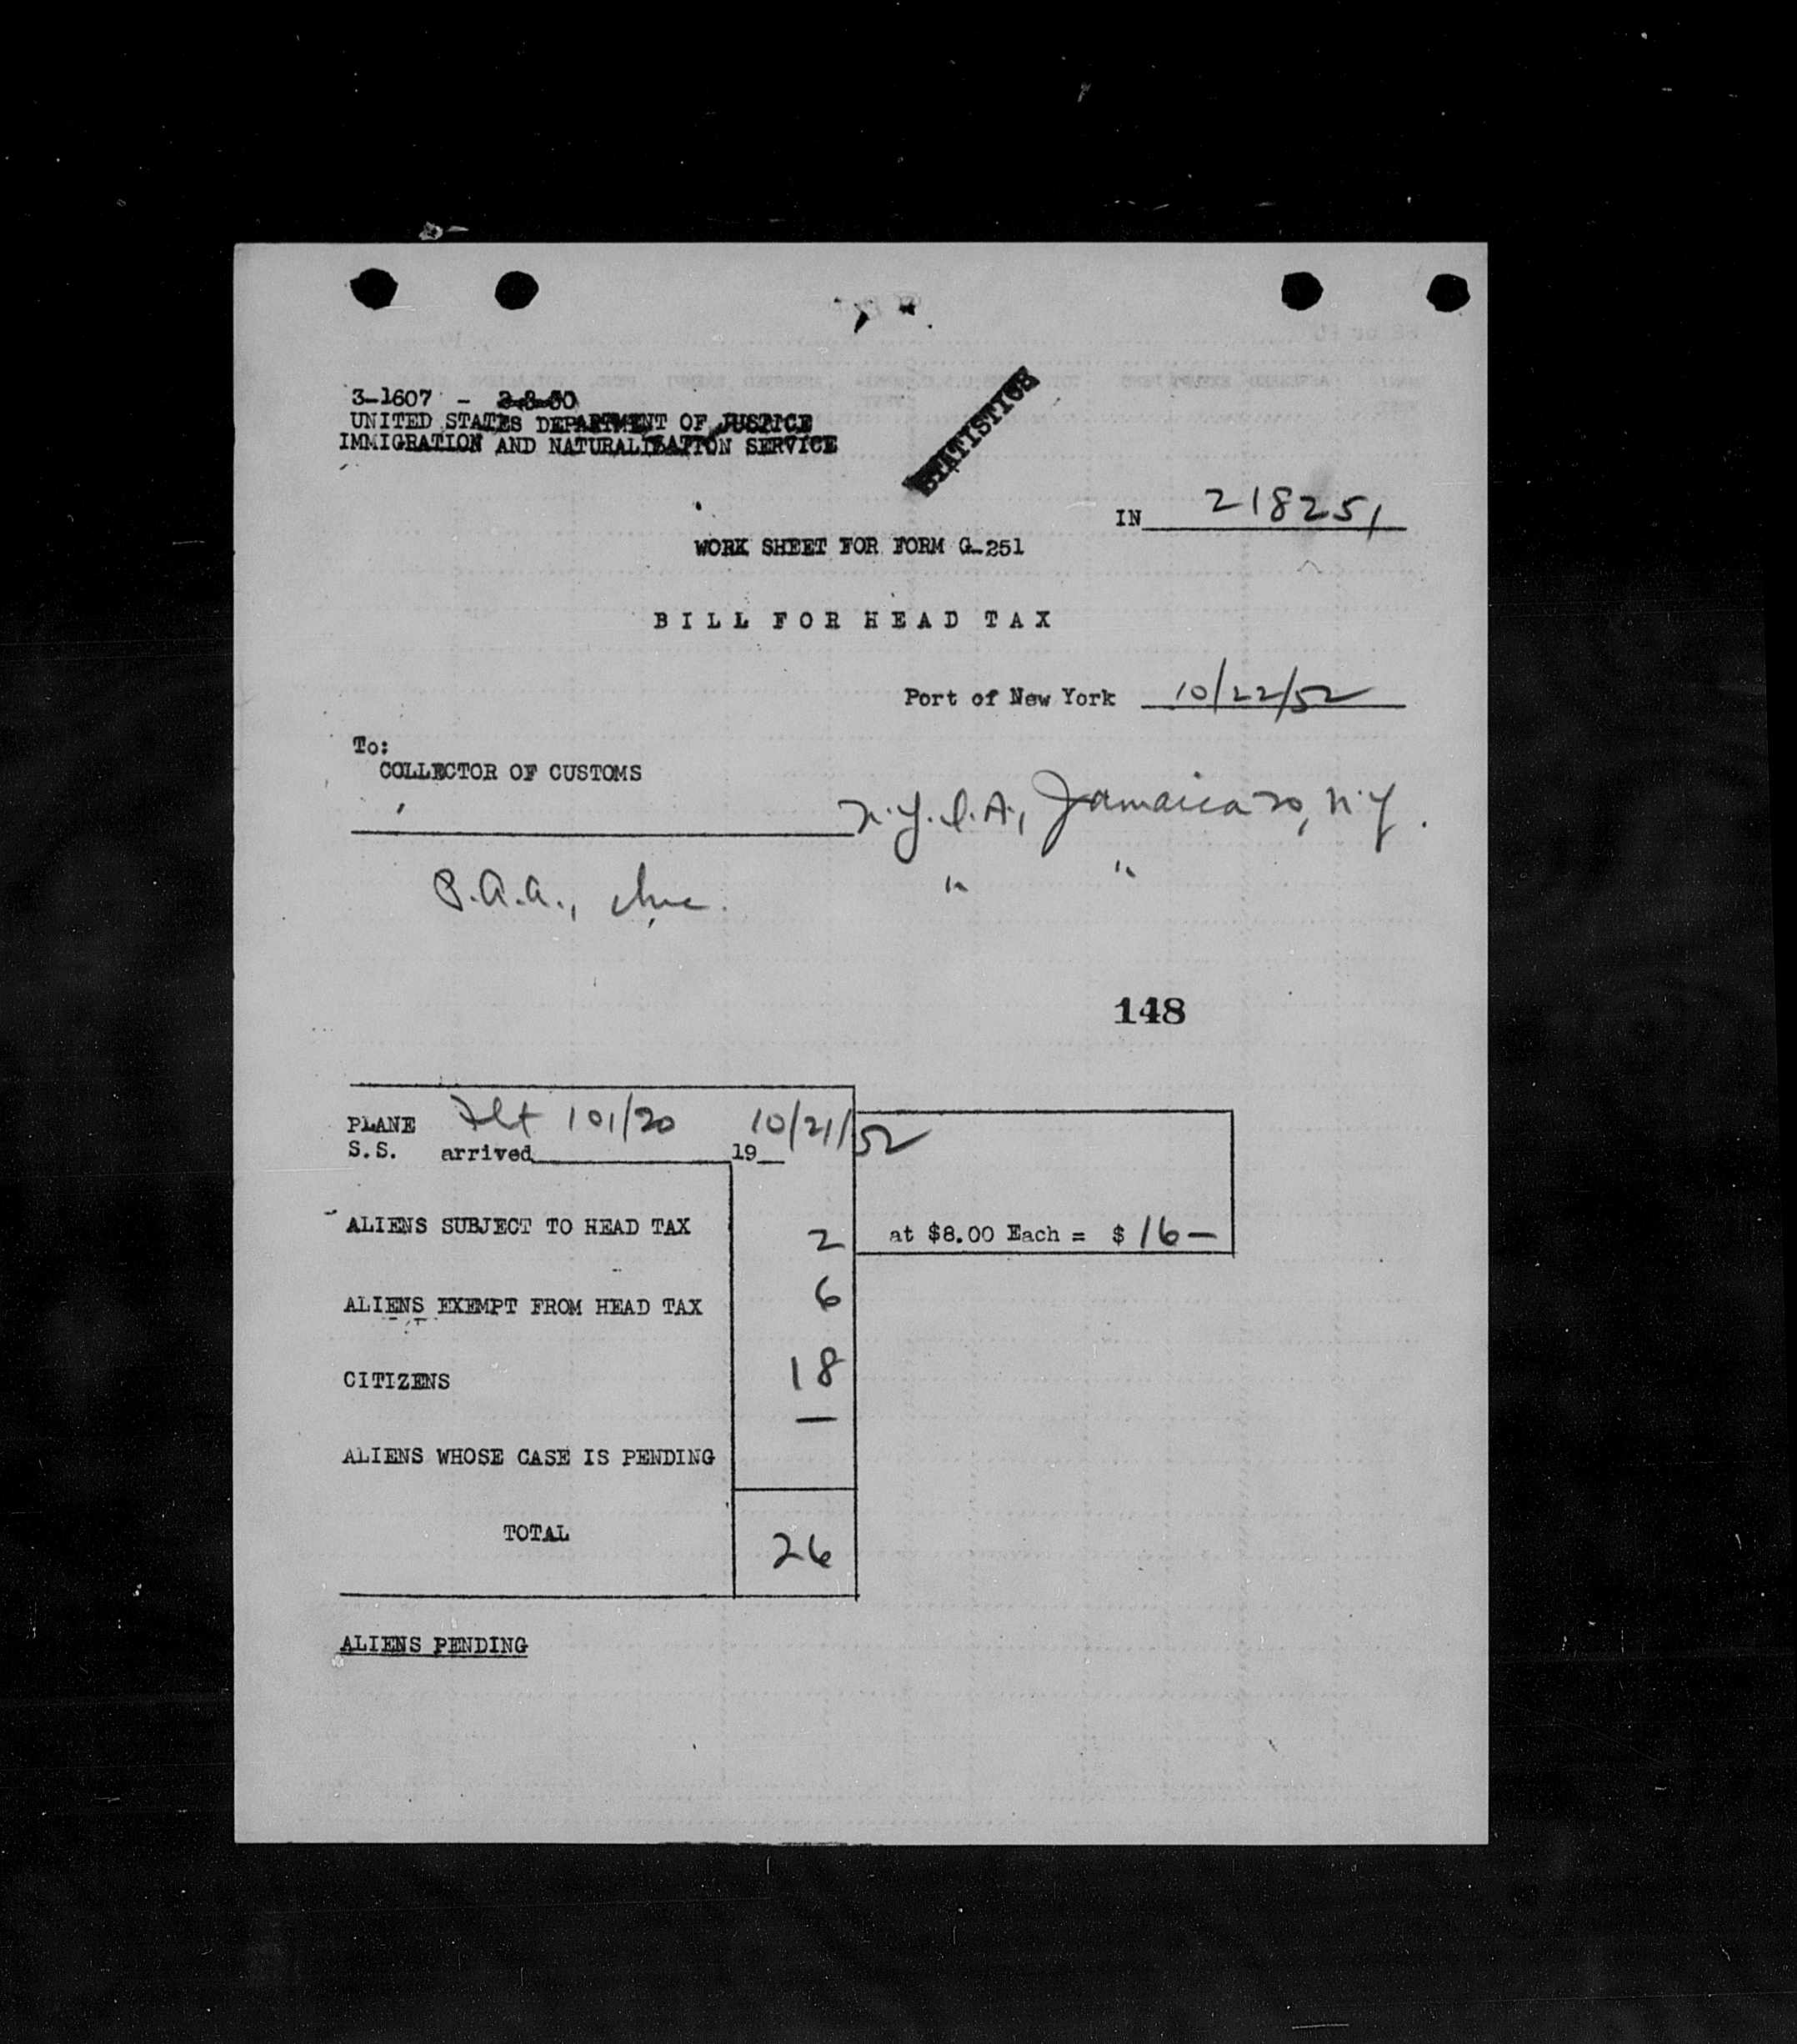 3-1607 - 2-8-50
UNITED STATES DEPARTMENT OF JUSTICE
IMMIGRATION AND NATURALIZATION SERVICE
STATISTICS
IN 218251
WORK SHEET FOR FORM G-251
BILL FOR HEAD TAX
Port of New York 10/22/52
To:
COLLECTOR OF CUSTOMS
N.Y.I.A., Jamaica 30, N.Y.
P.A.A., Inc. " "
148
PLANE Flt 101/20 10/21/52
S.S. arrived 19
ALIENS SUBJECT TO HEAD TAX 2 at $8.00 Each = $ 16—
ALIENS EXEMPT FROM HEAD TAX 6
CITIZENS 18
—
ALIENS WHOSE CASE IS PENDING
TOTAL 26
ALIENS PENDING